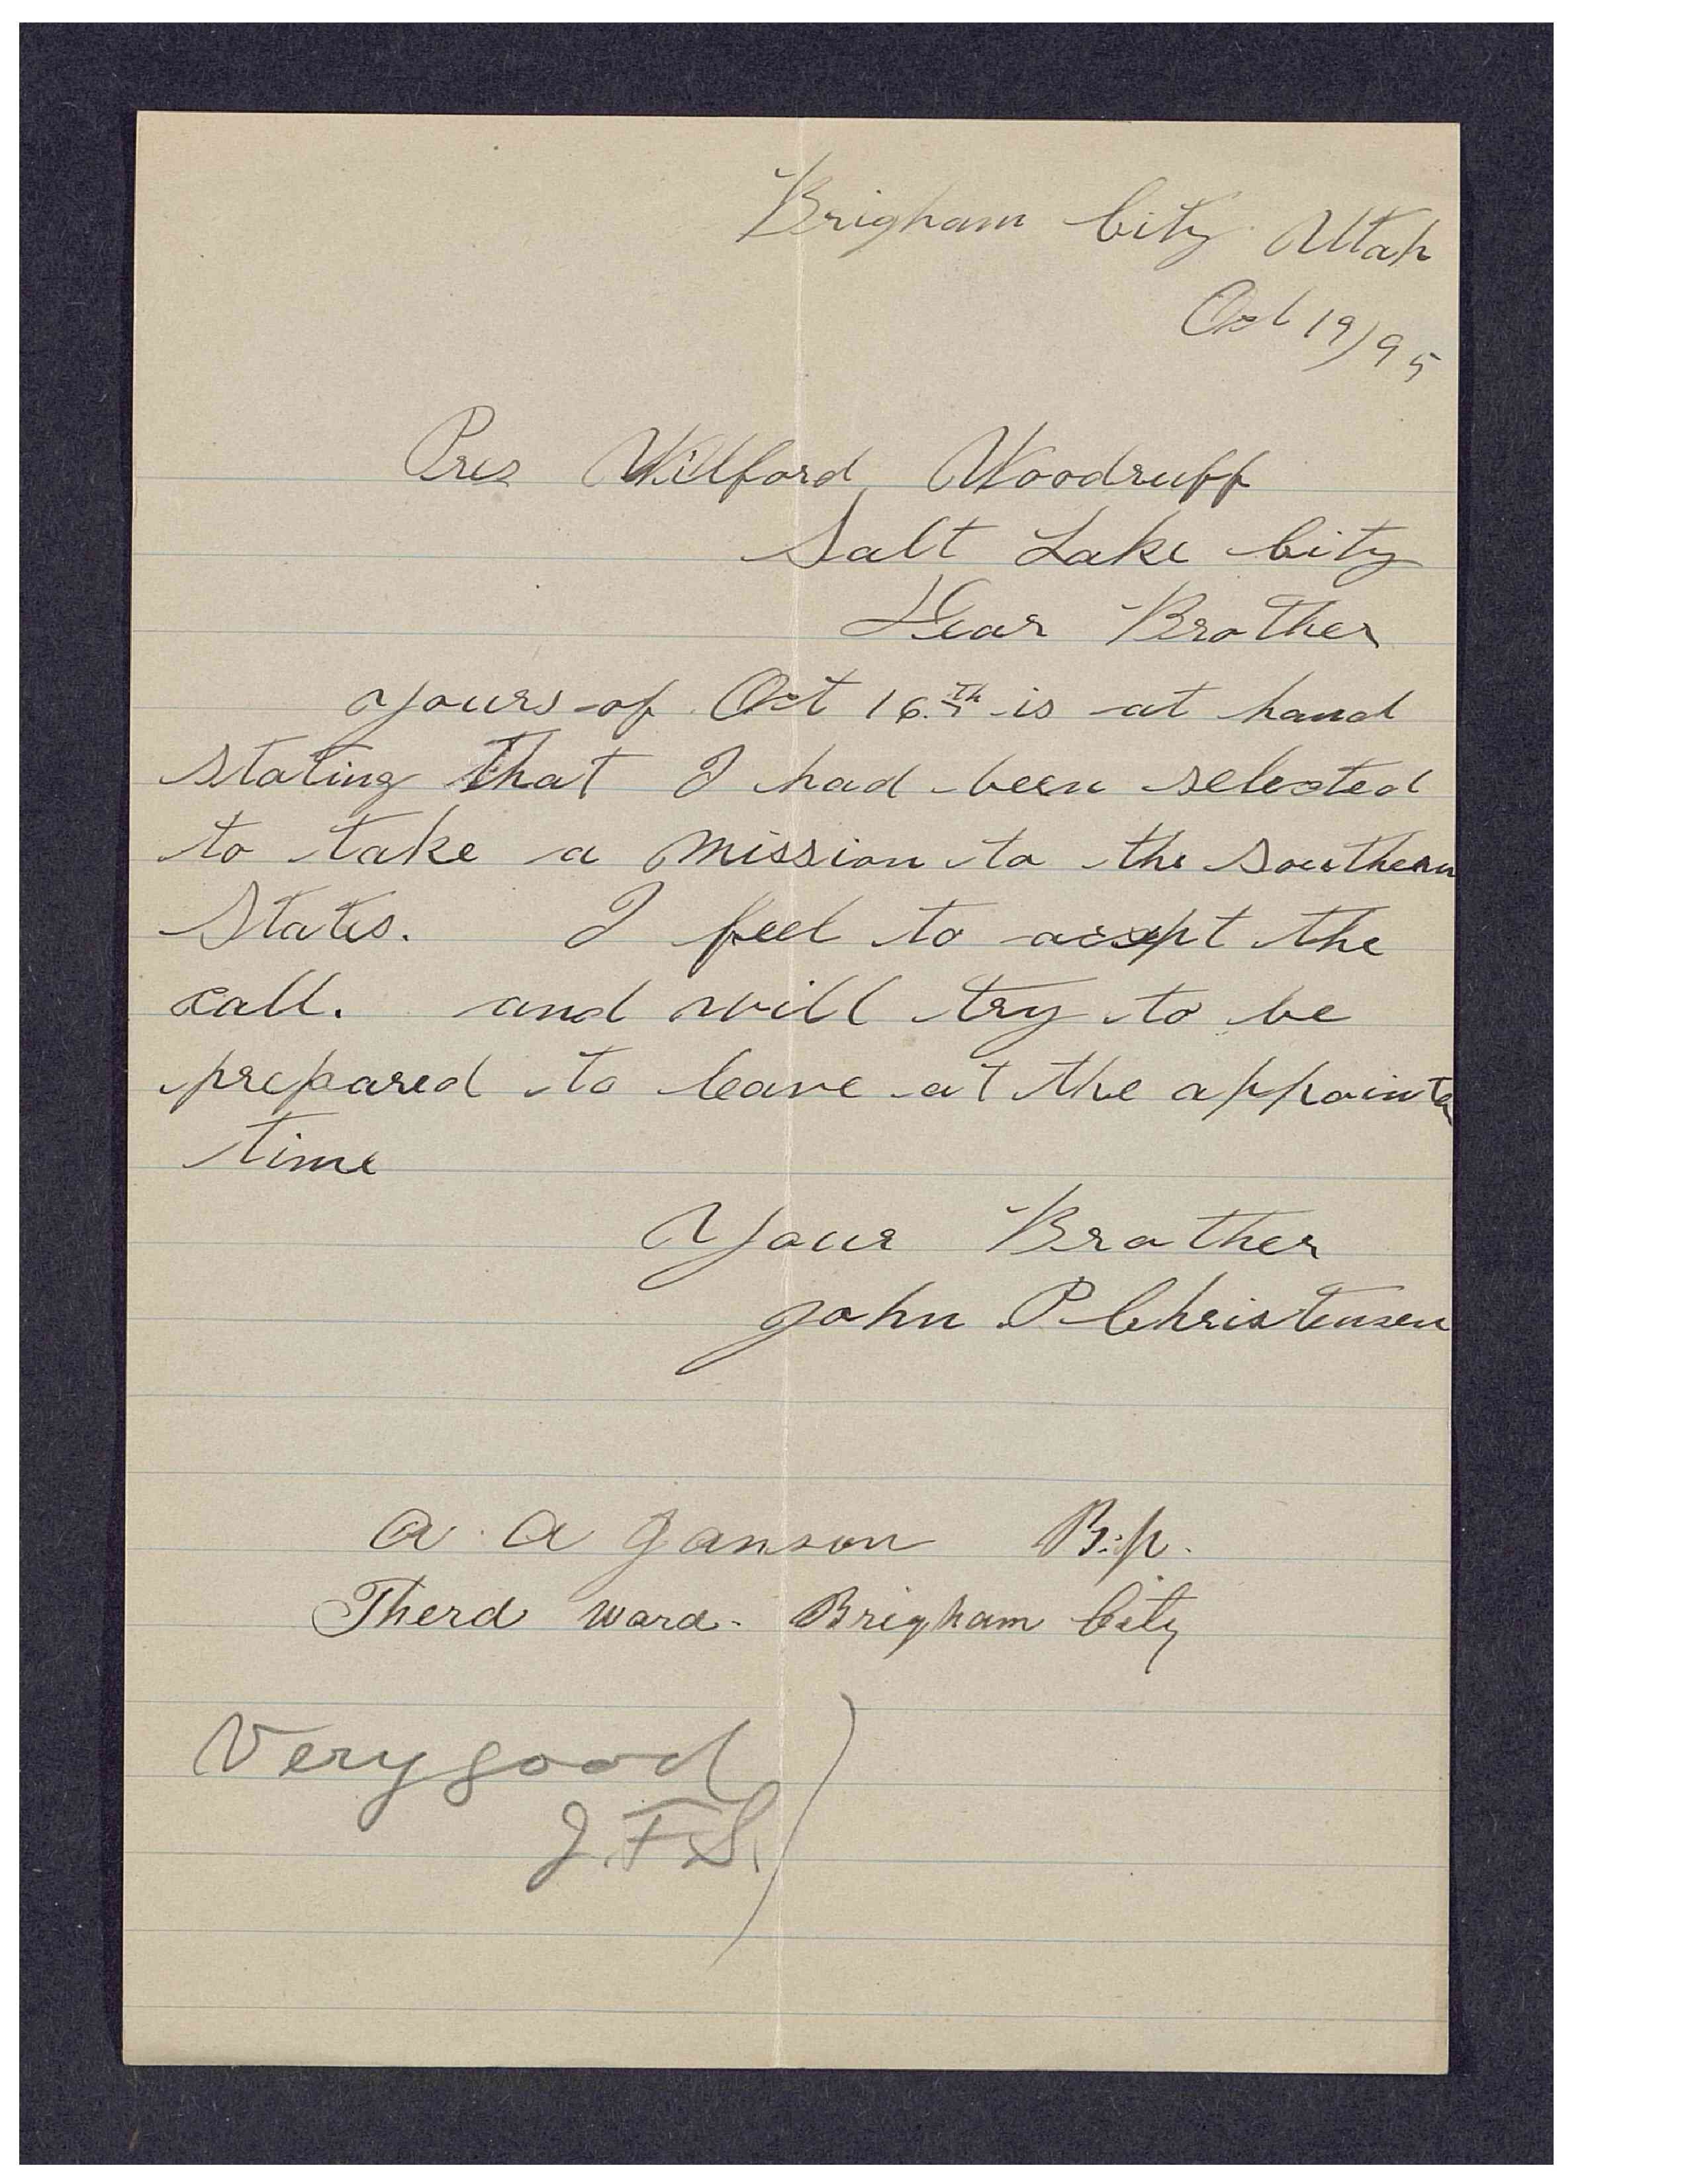 Brigham City Utah
Oct 19/95
Pres Wilford Woodruff
Salt Lake City
Dear Brother
yours of Oct 16th is at hand
stating that I had been selected
to take a mission to the southern
States. I feel to accept the
call. and will try to be
prepared to leave at the appointed
time
Your Brother
John P Christensen
A. A Janson Bp.
Therd ward. Brigham City
Very good
J.F.S.